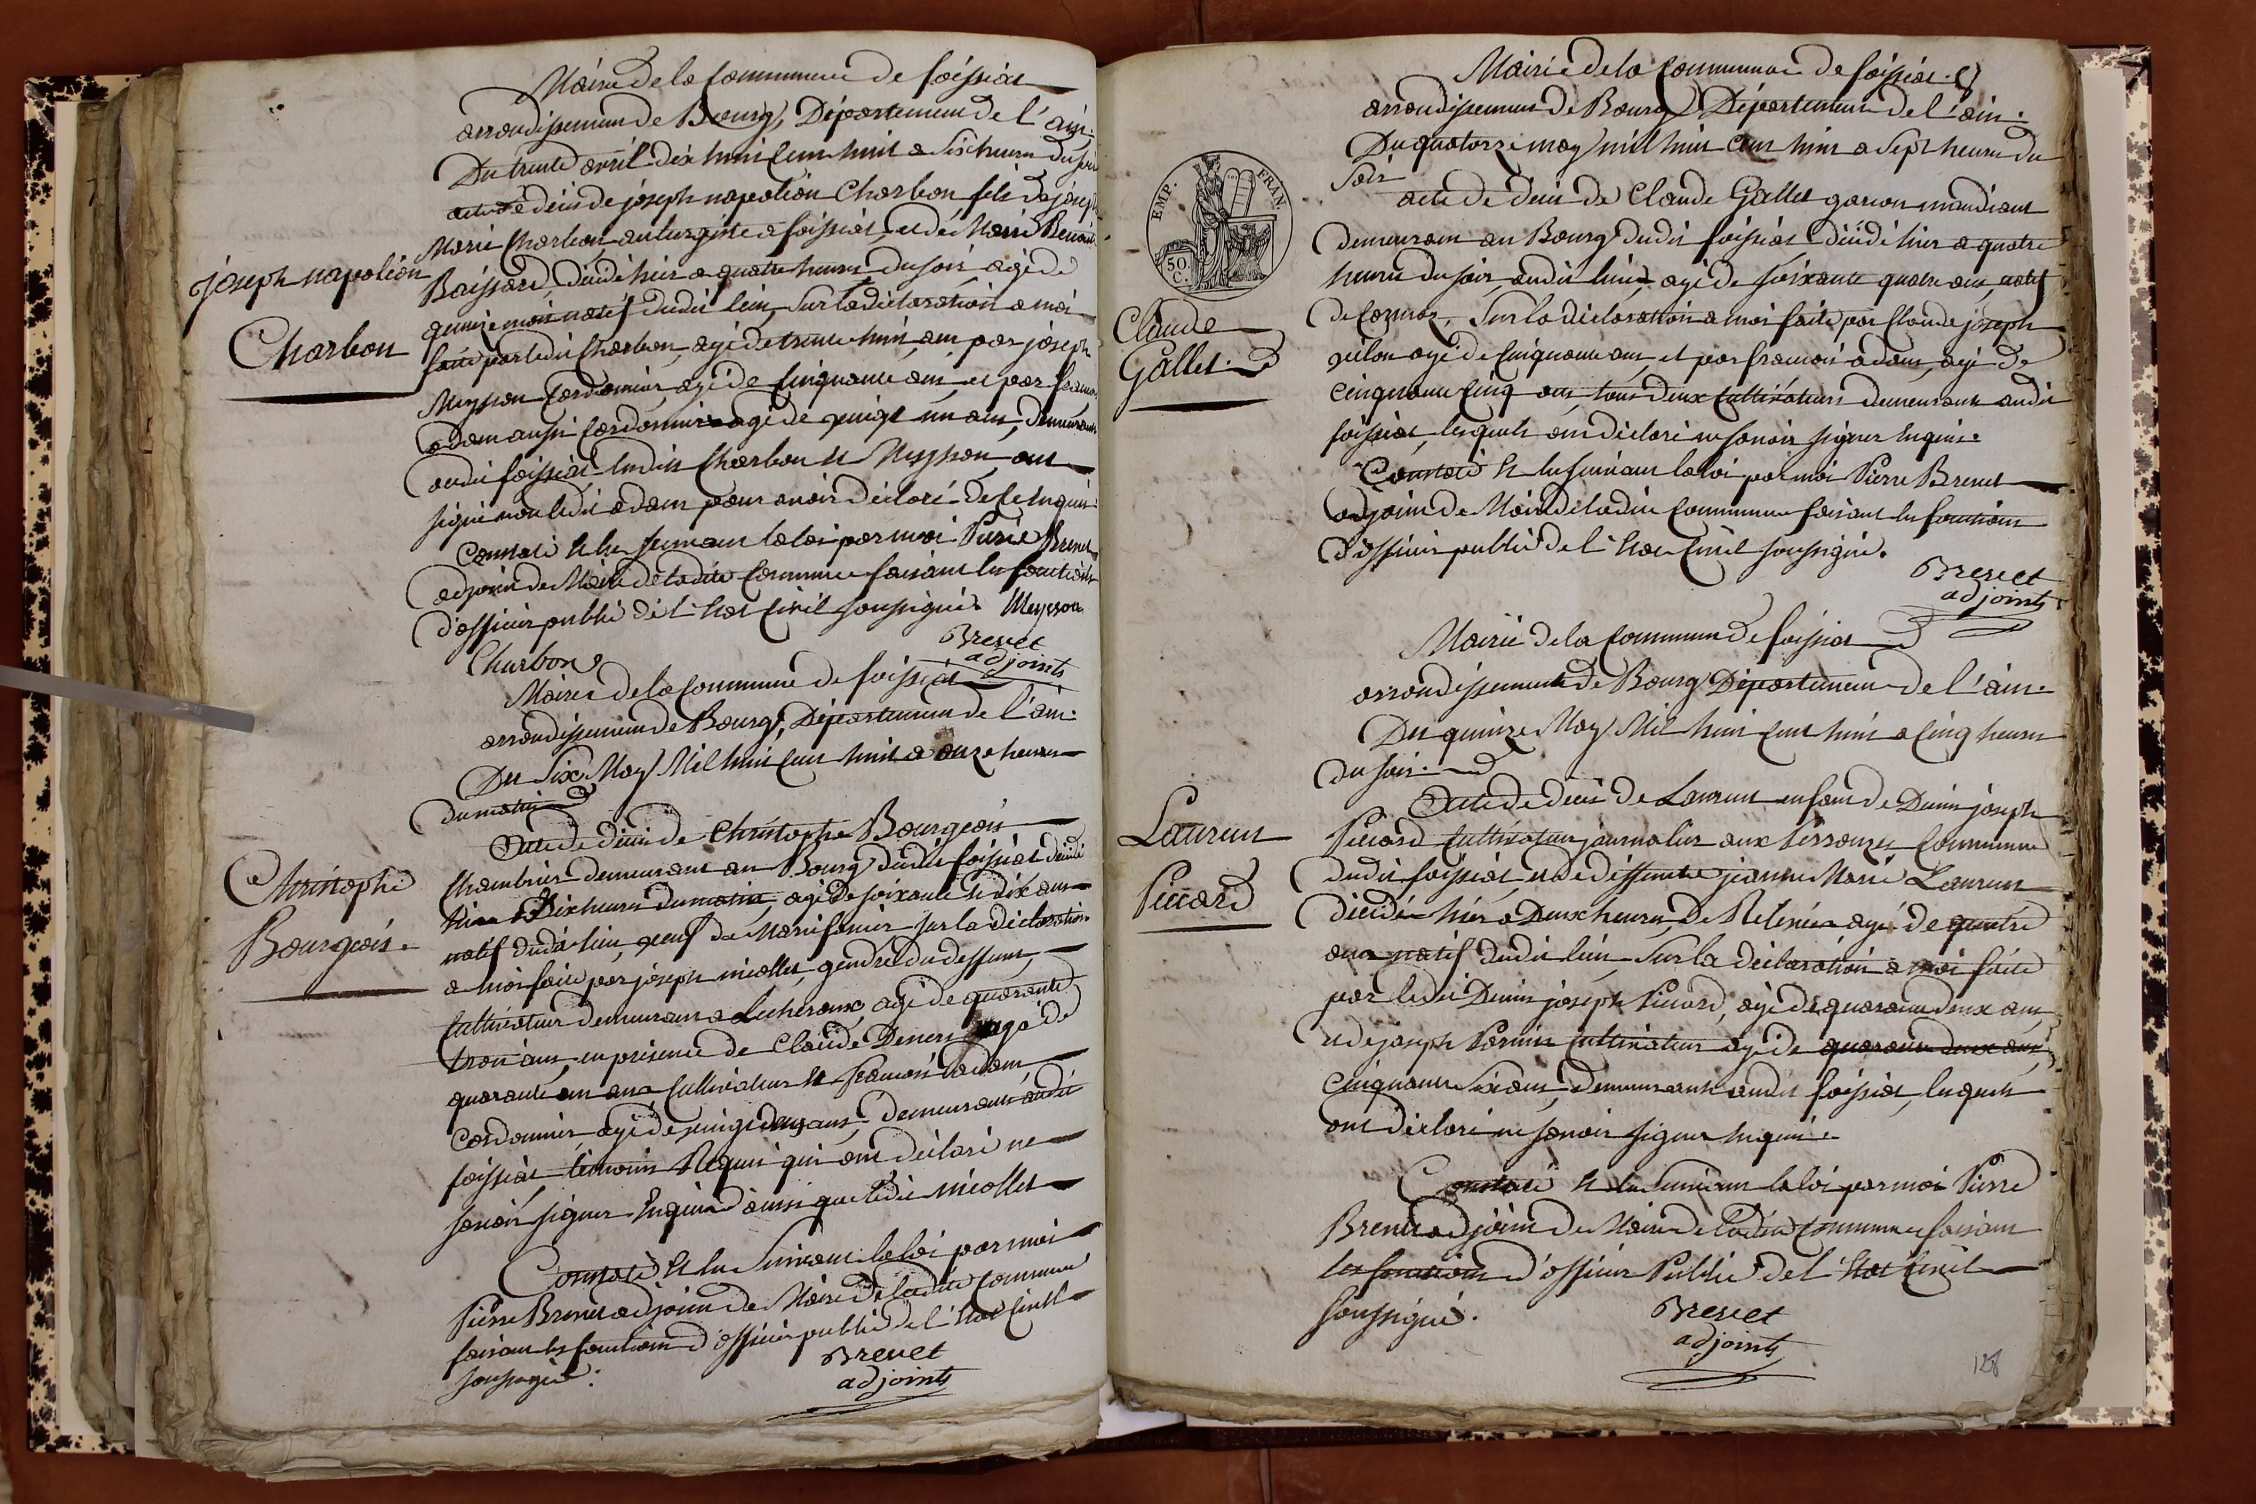 Mairie de la Commune de foissiat
arrondissement de Bourg, Département de l'ain.
Du trente avril dix huit cent huit a Six heures du soir
acte de décès de joseph napoléon Charbon fils de joseph
Marie Charbon, a foissiat, et de Marie
Boissard, décédé hier a quatre heures du soir, agé de
quinze mois natif dudit lieu, sur la déclaration a moi
faite par ledit Charbon, agé de trente huit ans, par joseph
Meysson Cordonnier, agé de Cinquante ans, et par francois
adam aussi Cordonnier agé de vingt un ans, demeurants
audit foissiat, lesdits Charbon et Meysson ont
signé non ledit adam pour avoir déclaré de ce enquis.
Constaté et lu suivant la loi par moi Pierre Brevet
adjoint de Maire de ladite Commune faisant les fonctions
d'officier public de l'Etat Civil soussigné. Meysson
Charbon
Brevet
adjoints
joseph napoléon
Charbon
Mairie de la Commune de foissiat
arrondissement de Bourg, Département de l'ain.
Du Six May Mil huit cent huit a onze heures
du matin
Acte de décès de Christophe Bourgeois
Chambrier demeurant au Bourg dudit foissiat décédé
hier a Dix heures du matin, agé de soixante et dix ans
natif dudit lieu, veuf de Marie sur la déclaration
a moi faite par joseph nicollet, gendre du deffunt,
Cultivateur demeurant a Lecheroux, agé de quarante
trois ans, en présence de Claude agé de
quarante un ans Cultivateur et francois adam,
Cordonnier, agé de vingt ans, demeurants audit
foissiat, témoins Requis qui ont déclaré ne
savoir signer Enquis ainsi que ledit nicollet
Constaté et lu Suivant la loi par moi
Pierre Brevet adjoint de Maire de ladite Commune
faisant les fonctions d'officier public de l'Etat Civil
soussigné.
Brevet
adjoints
Christophe
Bourgeois.
Mairie de la Commune de foissiat.
arrondissement de Bourg, Département de l'ain.
Du quatorze may mil huit cent huit a Sept heures du
Soir
acte de décès de Claude Gallet garcon mandiant
demeurant au Bourg dudit foissiat décédé hier a quatre
heures du soir audit lieu, agé de soixante quatre ans, natif
de Cormoz, Sur la déclaration a moi faite par Claude joseph
agé de Cinquante ans, et par francois adam, agé de
cinquante cinq ans, tous deux Cultivateurs demeurants audit
foissiat, lesquels ont déclaré ne savoir signer Enquis.
Constaté et lu suivant la loi par moi Pierre Brevet
adjoint de Maire de ladite Commune faisant les fonctions
d'officier public de l'Etat Civil soussigné.
Brevet
adjoints
EMP. FRAN.
50.
C.
Claude
Gallet.
Mairie de la Commune de foissiat
arrondissement de Bourg Département de l'ain.
Du quinze May Mil huit cent huit a Cinq heures
du soir.
Acte de décès de Laurent enfant de Denis joseph
Piccard Cultivateur journalier aux Commune
dudit foissiat, et de deffunte jeanne Marie Laurent
décédé hier a Deux heures, de Relevée agé de quatre
ans natif dudit lieu, Sur la déclaration a moi faite
par ledit Denis joseph Piccard, agé de quarante deux ans,
et de joseph cultivateur agé de quarante deux ans
Cinquante six ans, demeurants audit foissiat, lesquels
ont déclaré ne savoir signer Enquis.
Constaté et lu Suivant la loi par moi Pierre
Brevet adjoint de Maire de ladite Commune faisant
les fonctions d'officier Public de l'Etat Civil
soussigné.
Brevet
adjoints
Laurent
Piccard
128